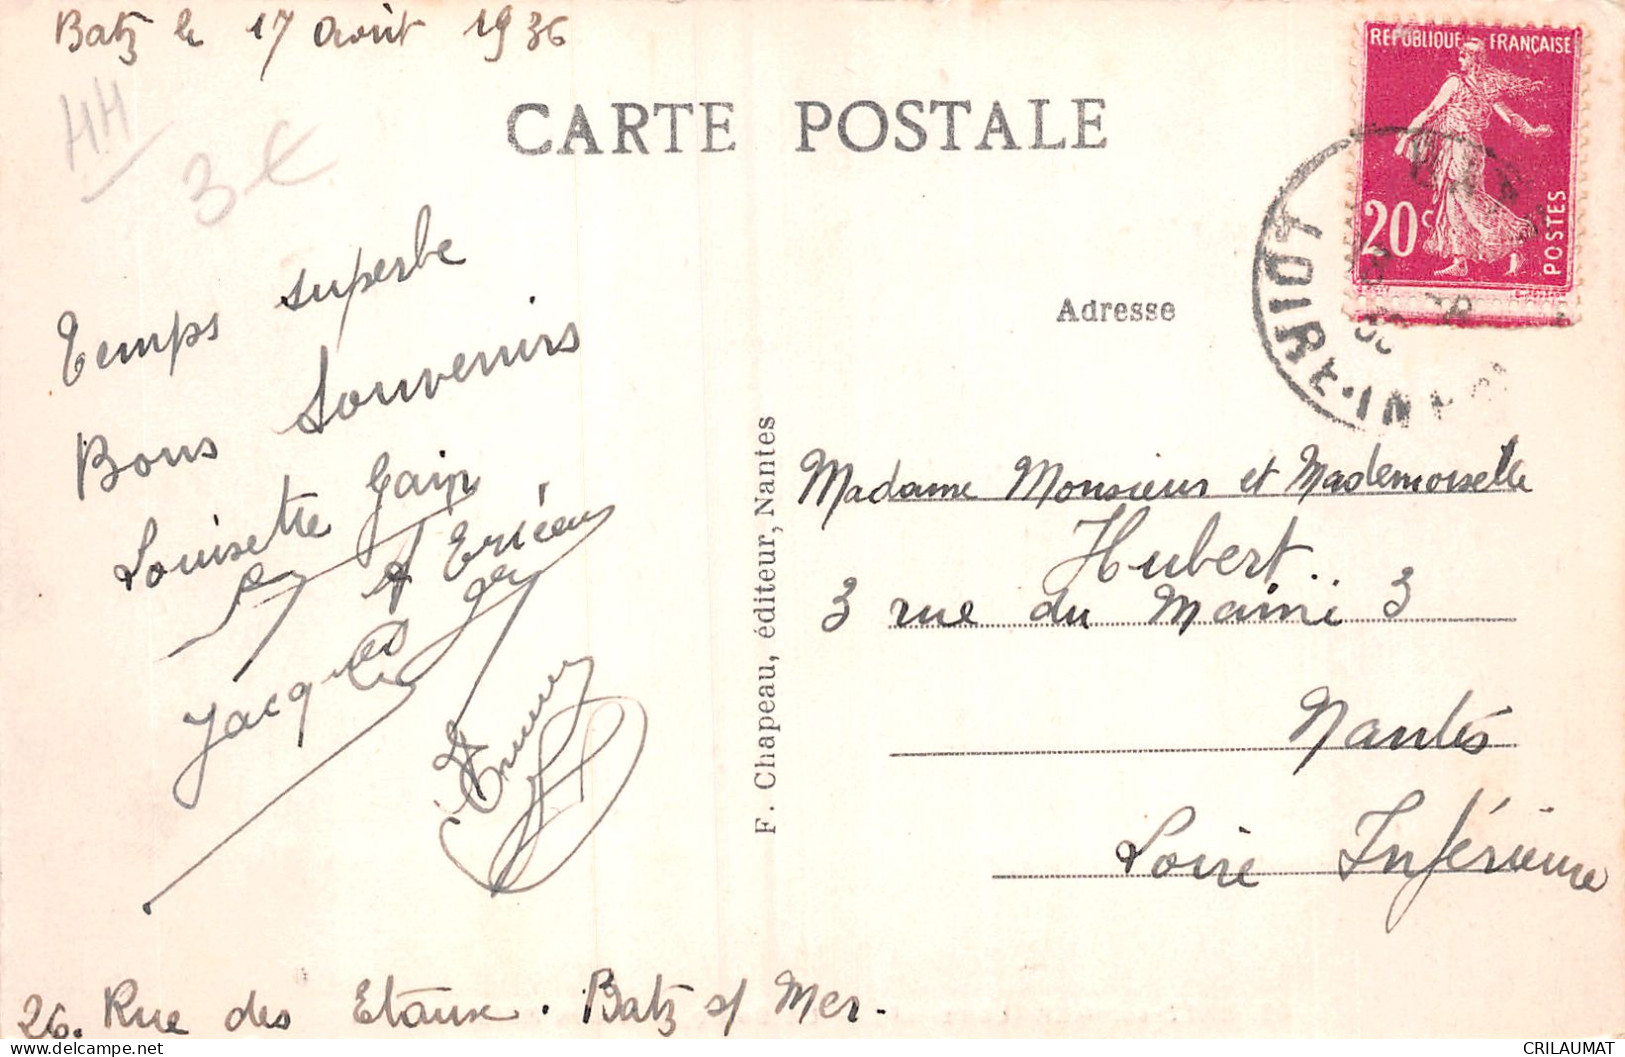 Batz le 17 Août 1936
44
3€
CARTE POSTALE
REPUBLIQUE FRANÇAISE
20c
POSTES
Temps superbe
Bons Souvenirs
Louisette Gain
Jacques
F. Chapeau, éditeur, Nantes
Adresse
Madame Monsieur et Mademoiselle
Hubert
3 rue du Maine 3
Nantes
Loire Inférieure
26. Rue des Etaux. Batz s/ Mer.
CRILAUMAT